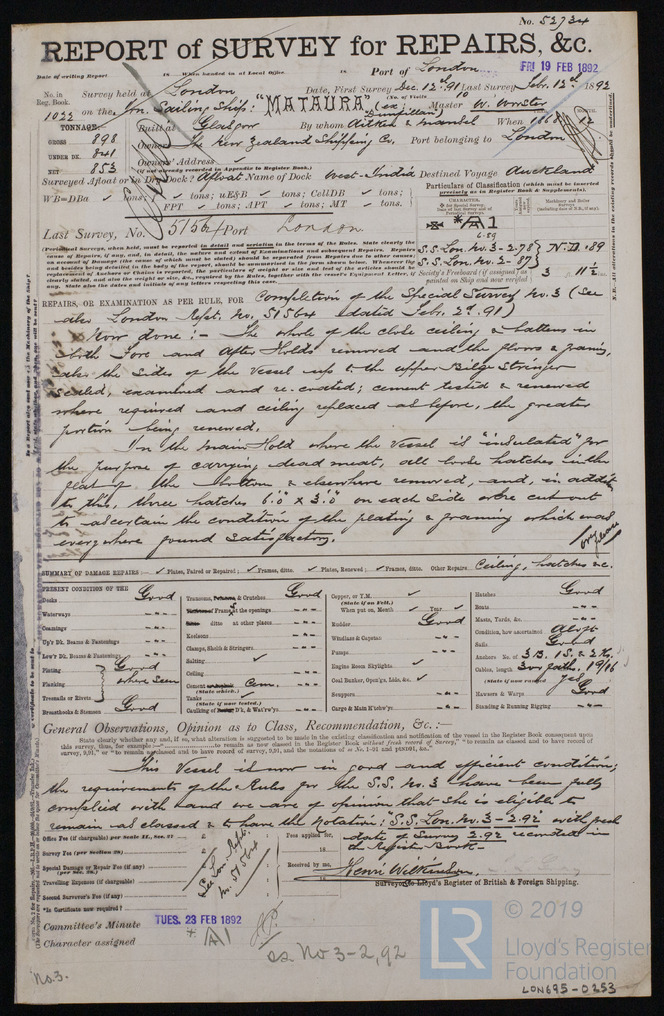 No. 52734
REPORT of SURVEY for REPAIRS, &c.
Date of writing Report 18 When handed in at Local Office 18 Port of London FRI 19 FEB 1892
No. in Reg. Book. Survey held at London Date, First Survey Dec. 12th 91 Last Survey Feb. 12th 1892
(No. of Visits 10
1022 on the Irn. Sailing Ship: "MATAURA" (ex Dunfillan) Master W. Worster
TONNAGE Built at Glasgow By whom Aitken & Mansel When 1868 12
GROSS 898 Owners The New Zealand Shipping Co. Port belonging to London
UNDER DK. 841 Owners' Address
NET 853 (If not already recorded in Appendix to Register Book.)
Surveyed Afloat or in Dry Dock? Afloat Name of Dock West India Destined Voyage Auckland
WB=DBa tons; uE&B tons; CellDB tons;
FPT tons; APT tons; MT tons.
Particulars of Classification (which must be inserted precisely as in Register Book & Supplements).
Last Survey, No. 51564 Port London
A1
6.89
S.S. Lon. No. 3-2.78
S.S. Lon. No. 2-87
N.D. 89
Society's Freeboard (if assigned) as painted on Ship and now verified 3 11½
REPAIRS, OR EXAMINATION AS PER RULE, FOR Completion of the Special Survey No. 3 (See
also London Rept. No. 51564 dated Febr. 2d. 91)
Now done:- The whole of the close ceiling & battens in
both Fore and After Holds removed and the floors & frames,
also the sides of the vessel up to the upper Bilge Stringer
scaled, examined and re-coated; cement tested & renewed
where required and ceiling replaced as before, the greater
portion being renewed.
In the Main Hold where the Vessel is "insulated" for
the purpose of carrying dead meat, all loose hatches in the
flat of the bottom & elsewhere removed, and, in addition
to this, three hatches 6'.0" x 3'.0" on each side were cut out
to ascertain the condition of the plating & framing which was
everywhere found satisfactory.
SUMMARY OF DAMAGE REPAIRS Plates, Faired or Repaired; Frames, ditto. Plates, Renewed; Frames, ditto. Other Repairs Ceiling, hatches &c.
PRESENT CONDITION OF THE
Decks Good
Waterways
Coamings
Up'r. Dk. Beams & Fastenings
Low'r Dk. Beams & Fastenings
Plating Good
Planking where seen
Treenails or Rivets
Breasthooks & Stemson Good
Transoms, & Crutches Good
Frames at the openings
ditto at other places
Keelsons
Clamps, Shelfs & Stringers
Salting
Ceiling
Cement Cem.
(State which.)
Tanks
(State if now tested.)
Caulking of D'k. & Wat'rw'ys.
Copper, or Y.M.
(State if on Felt.)
When put on, Month Year
Rudder Good
Windlass & Capstan
Pumps
Engine Room Skylights
Coal Bunker, Open'gs, Lids, &c.
Scuppers
Cargo & Main H'tchw'ys.
Hatches Good
Boats
Masts, Yards, &c.
Condition, how ascertained Aloft
Sails Good
Anchors No. of 3 B. 1 S. & 2 K.
Cables, length 300 faths. 1 9/16
(State if now ranged) yes
Hawsers & Warps Good
Standing & Running Rigging
General Observations, Opinion as to Class, Recommendation, &c.:—
This Vessel is now in good and efficient condition;
the requirements of the Rules for the S.S. No. 3 have been fully
complied with and we are of opinion that she is eligible to
remain as classed & to have the notation "S.S. Lon. No. 3-2.92 with fresh
date of Survey 2.92 recorded in
the Register Book.
Office Fee (if chargeable) per Scale II., Sec. 27
Survey Fee (per Section 28)
Special Damage or Repair Fee (if any)
(per Sec. 28.)
Travelling Expenses (if chargeable)
Second Surveyor's Fee (if any)
See Lon. Rept. No. 51564
Fees applied for,
18
Received by me,
18
Henri Wilkinson.
Surveyor to Lloyd's Register of British & Foreign Shipping.
Is Certificate now required?
Committee's Minute TUES. 23 FEB 1892
Character assigned A1
ss. No 3-2,92
No. 3.
LR
© 2019
Lloyd's Register
Foundation
LON695-0253